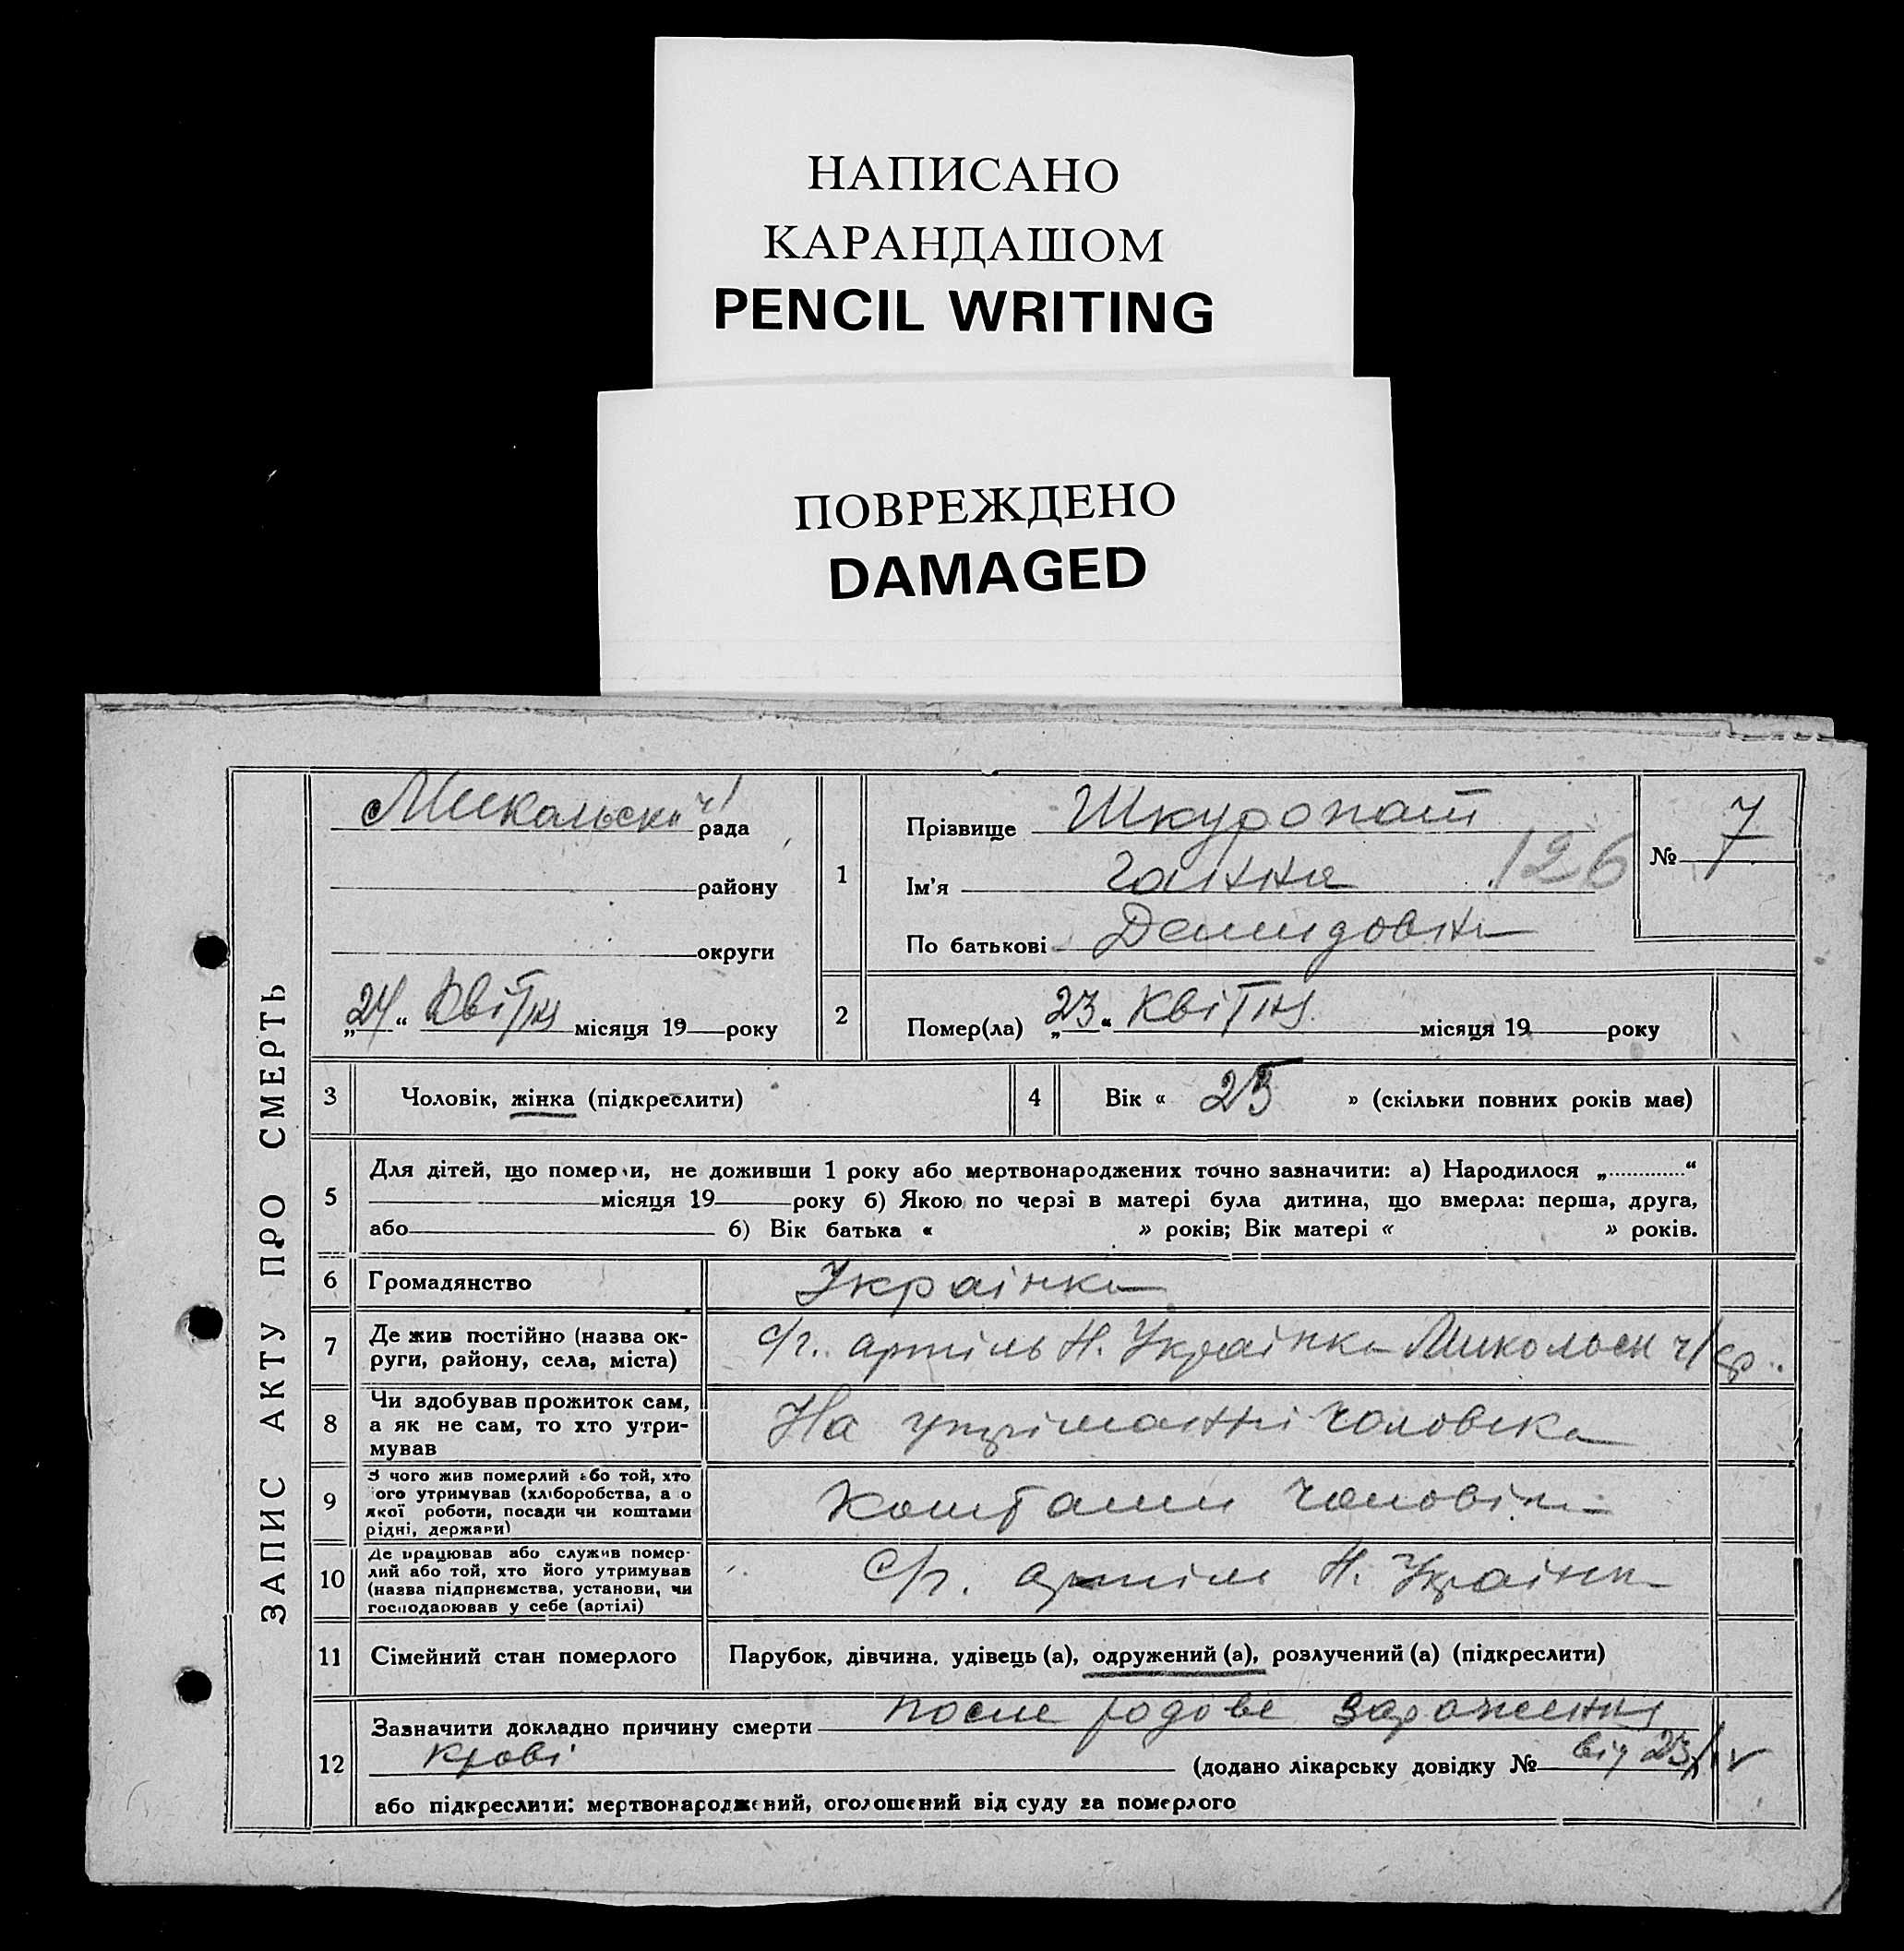 НАПИСАНО
КАРАНДАШОМ
PENCIL WRITING
ПОВРЕЖДЕНО
DAMAGED
ЗАПИС АКТУ ПРО СМЕРТЬ
Микольськ ч/ рада
району
округи
„24“ Квітня місяця 19 року
1 Прізвище Шкуропат
Ім'я Ганна 126
По батькові Демидовна
№ 7
2 Помер(ла) „23“ Квітня місяця 19 року
3 Чоловік, жінка (підкреслити)
4 Вік « » (скільки повних років має)
5 Для дітей, що померли, не доживши 1 року або мертвонароджених точно зазначити: а) Народилося „ “
місяця 19 року б) Якою по черзі в матері була дитина, що вмерла: перша, друга,
або б) Вік батька « » років; Вік матері « » років.
6 Громадянство Украінка
7 Де жив постійно (назва ок-
руги, району, села, міста) с/г. артіль Н. Украінка Микольськ ч/ср.
8 Чи здобував прожиток сам,
а як не сам, то хто утри-
мував На утріманні чоловіка
9 З чого жив померлий або той, хто
ого утримував (хліборобства, а о
якої роботи, посади чи коштами
рідні, держави) Коштами чоловіка
10 Де працював або служив помер-
лий або той, хто його утримував
(назва підприємства, установи, чи
господарював у себе (артілі) с/г. артіль Н. Украінка
11 Сімейний стан померлого Парубок, дівчина, удівець (а), одружений (а), розлучений (а) (підкреслити)
12 Зазначити докладно причину смерти после родове зараження
крові (додано лікарську довідку № від 23/IV
або підкреслити: мертвонароджений, оголошений від суду за померлого